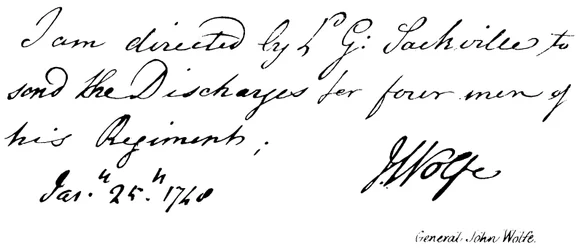 I am directed by Ld G: Sackville to
send the Discharges for four men of
his Regiment;
J: Wolfe
Jan.y 25.th 1748
General John Wolfe.